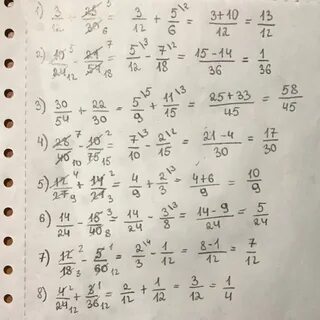 1) 3/12 + 25/30 = 3/12 + 5/6 = (3+10)/12 = 13/12
2) 10/24 - 21/54 = 5/12 - 7/18 = (15-14)/36 = 1/36
3) 30/54 + 22/30 = 5/9 + 11/15 = (25+33)/45 = 58/45
4) 28/40 - 10/75 = 7/10 - 2/15 = (21-4)/30 = 17/30
5) 12/27 + 14/21 = 4/9 + 2/3 = (4+6)/9 = 10/9
6) 14/24 - 15/40 = 14/24 - 3/8 = (14-9)/24 = 5/24
7) 12/18 - 5/60 = 2/3 - 1/12 = (8-1)/12 = 7/12
8) 4/24 + 3/36 = 2/12 + 1/12 = 3/12 = 1/4